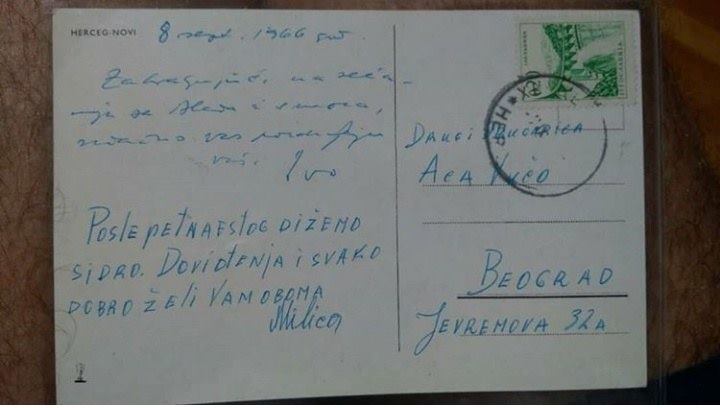 HERCEG-NOVI
8 sept. 1966 god.
Zahvaljujući, na seća-
nja sa
srdačno vas pozdravlja
vaš.
Ivo
POSLE PETNAESTOG DIŽEMO
SIDRO. DOVIĐENJA I SVAKO
DOBRO ŽELI VAM OBOMA
Milica
JUGOSLAVIJA
HER
DRUG I DRUGARICA
ACA VUČO
BEOGRAD
JEVREMOVA 32A